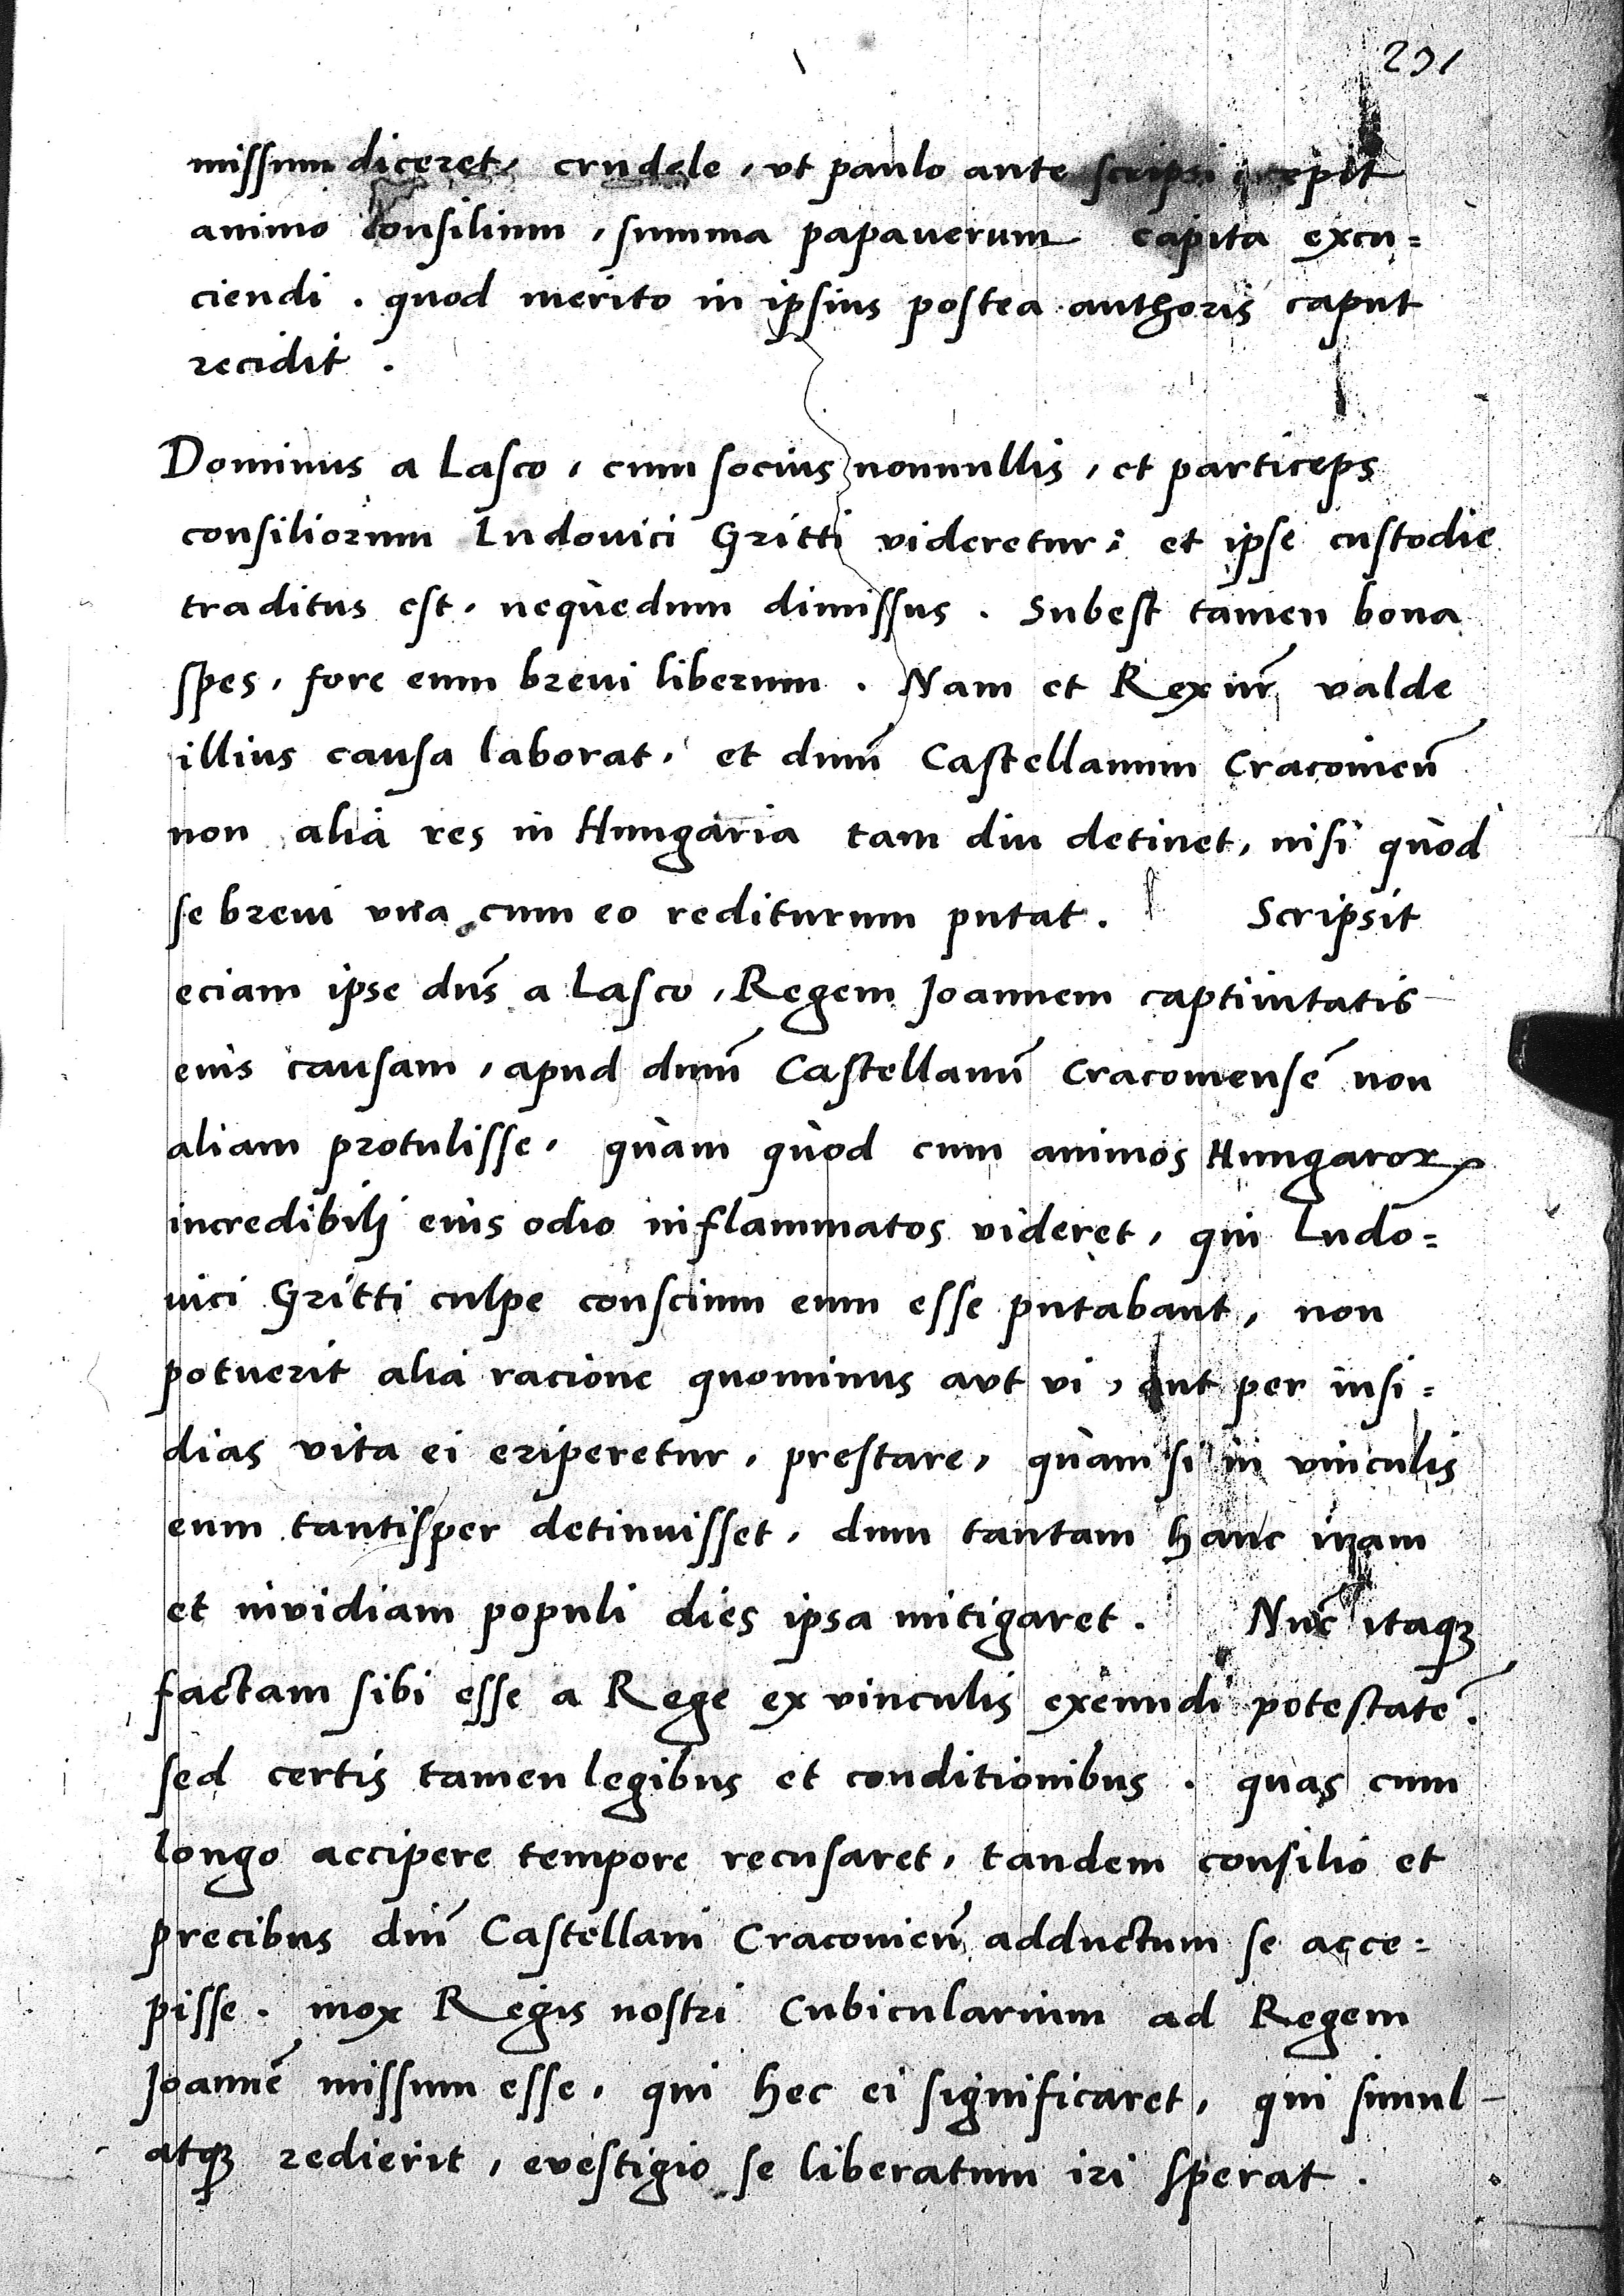 291
missum diceret, crudele, vt paulo ante scripsi cepit
animo consilium, summa papauerum capita excu=
ciendi. quod merito in ipsius postea authoris caput
recidit.
Dominus a Lasco, cum socius nonnullis, et particeps
consiliorum Ludouici Gritti videretur: et ipse custodie
traditus est, nequedum dimissus. Subest tamen bona
spes, fore eum breui liberum. Nam et Rex nr̃ valde
illius causa laborat, et dnum̃ Castellanum Cracouieñ
non alia res in Hungaria tam diu detinet, nisi quòd
se breui vna cum eo rediturum putat. Scripsit
eciam ipse dns̃ a Lasco, Regem Joannem captiuitatis
eius causam, apud dnum̃ Castellanũ Cracouiensẽ non
aliam protulisse, quàm quòd cum animos Hungarorꝝ
incredibili eius odio inflammatos videret, qui Ludo=
uici Gritti culpe conscium eum esse putabant, non
potuerit alia racione quominus avt vi, aut per insi=
dias vita ei eriperetur, prestare, quàm si in vinculis
eum tantisper detinuisset, dum tantam hanc iram
et inuidiam populi dies ipsa mitigaret. Nũc itaqꝫ
factam sibi esse a Rege ex vinculis exeundi potestatẽ.
sed certis tamen legibus et conditionibus. quas cum
longo accipere tempore recusaret, tandem consilio et
precibus dnĩ Castellani Cracouieñ adductum se acce=
pisse. mox Regis nostri Cubicularium ad Regem
Joannẽ missum esse, qui hec ei significaret, qui simul
atqꝫ redierit, evestigio se liberatum iri sperat.